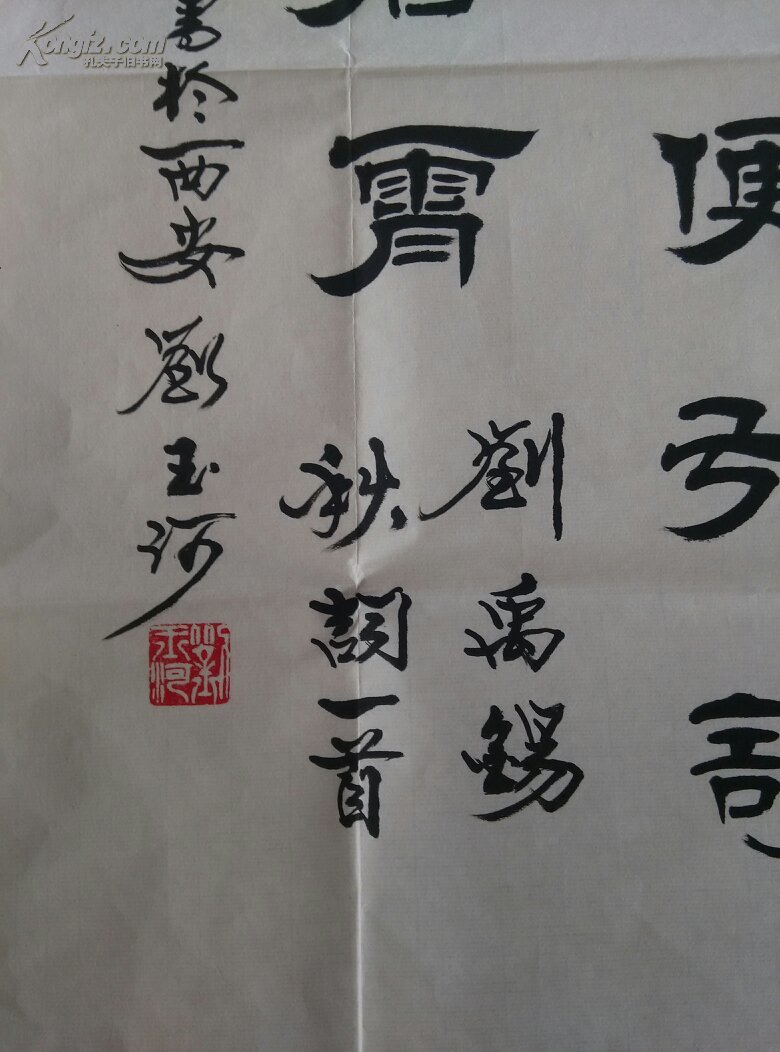 便
霄
劉禹錫
秋詞一首
書於西安劉玉河
劉玉河
Kongfz.com
孔夫子旧书网